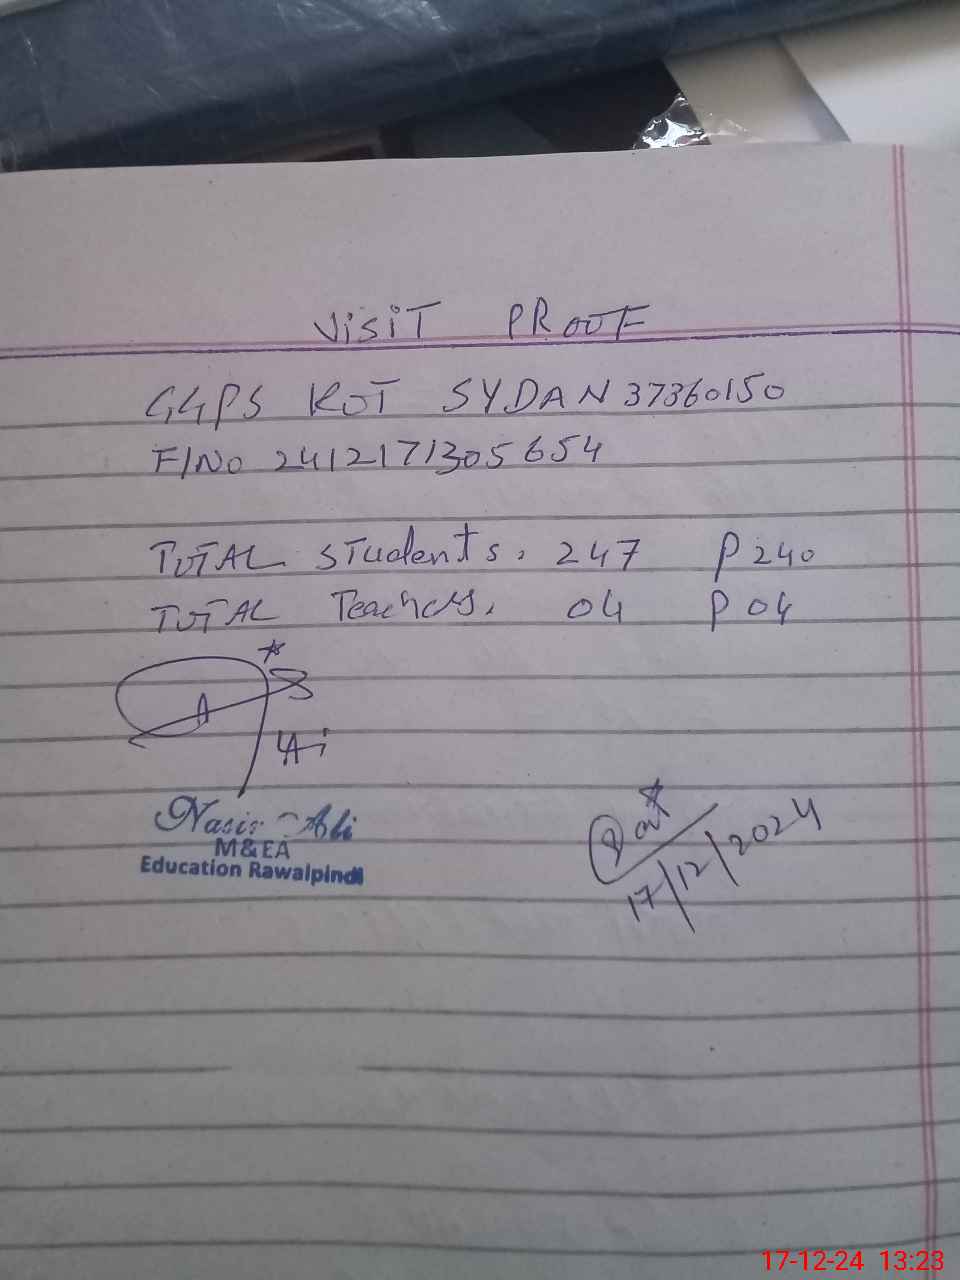 VISIT PROOF
GGPS KOT SYDAN 37360150
F/No 2412171305654
TOTAL Students. 247 P 240
TOTAL Teachers. 04 P 04
Nasir Ali
M&EA
Education Rawalpindi
17/12/2024
17-12-24 13:23